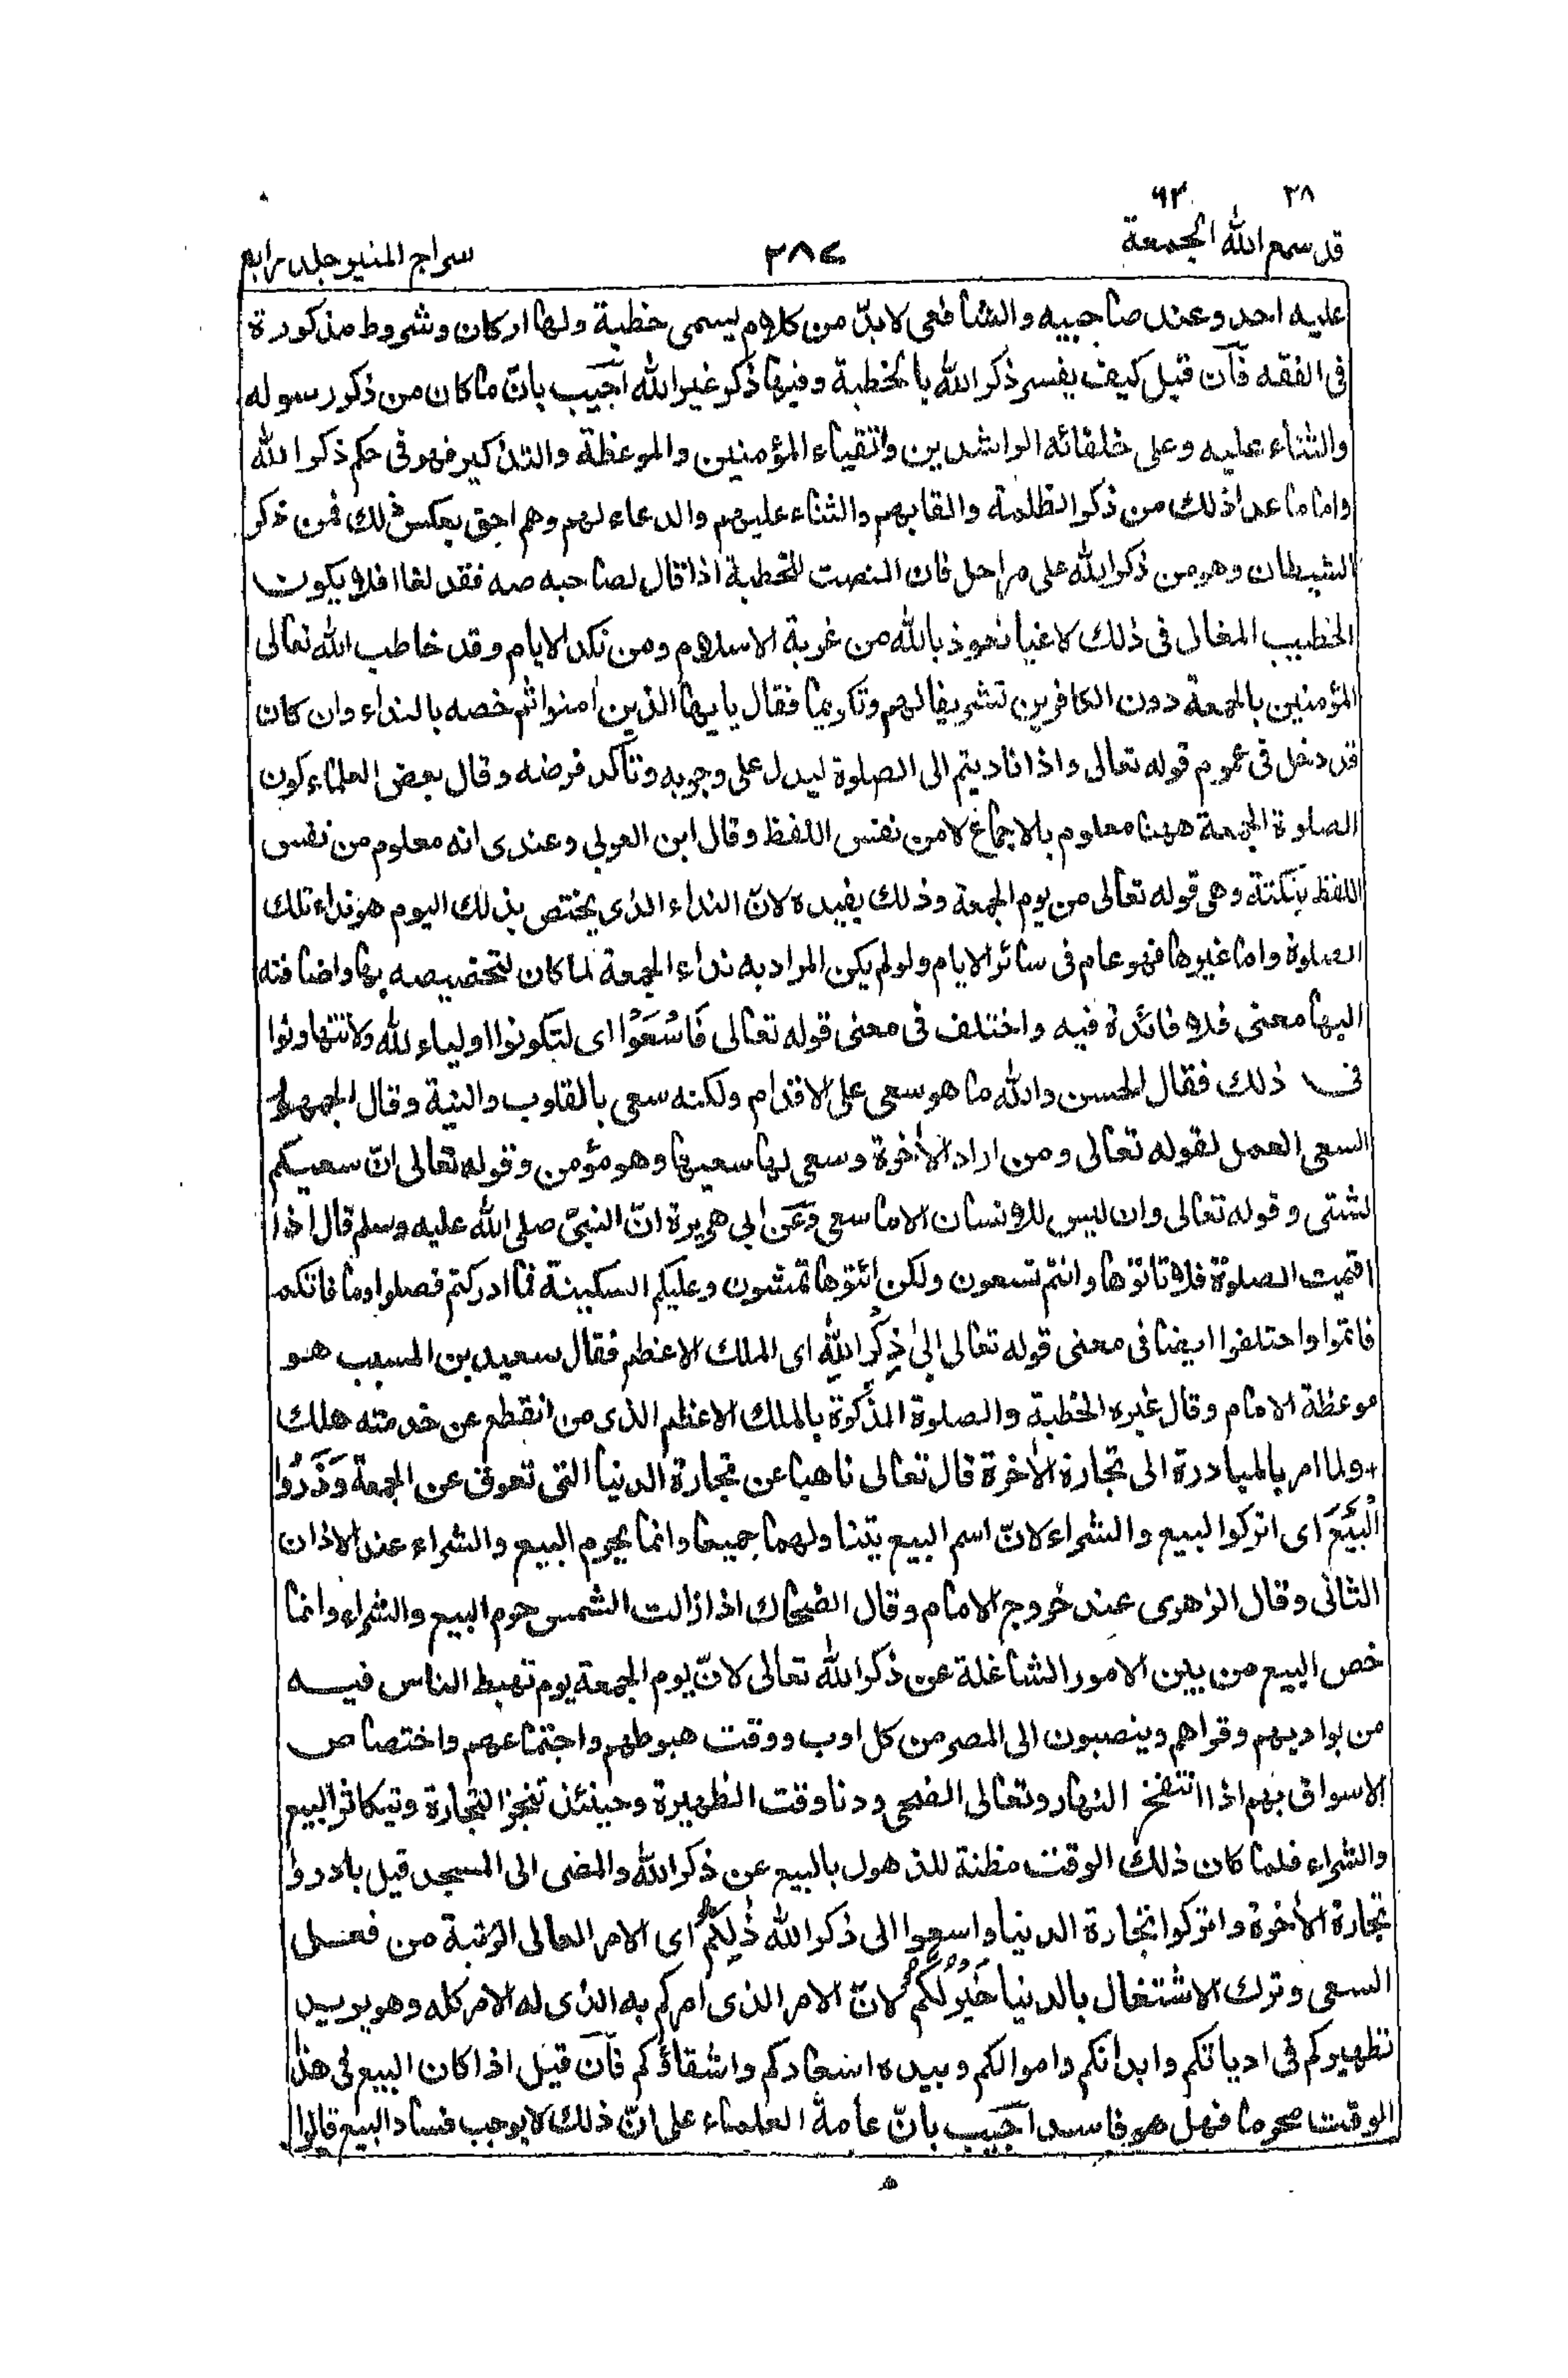 ٢٨ ٦٢
قد سمع الله الجمعة ٢٨٧ سراج المنير جلد رابع
عليه احد وعند صاحبيه والشافعى لابدّ من كلام يسمى خطبة ولها اركان وشروط مذكورة
فى الفقه فآن قيل كيف يفسر ذكر الله بالخطبة وفيها ذكر غير الله اجيب بانّ ما كان من ذكر رسوله
والثناء عليه وعلى خلفائه الراشدين واتقياء المؤمنين والموعظة والتذكير فهو فى حكم ذكر الله
واما ما عدا ذلك من ذكر الظلمة والقابهم والثناء عليهم والدعاء لهم وهم احق بعكس ذلك فمن ذكر
الشيطان وهو من ذكر الله على مراحل فان المنصت للخطبة اذا قال لصاحبه صه فقد لغا افلا يكون
الخطيب المغالى فى ذلك لاغيا نعوذ بالله من غربة الاسلام ومن نكد الايام وقد خاطب الله تعالى
المؤمنين بالجمعة دون الكافرين تشريفا لهم وتكريما فقال يايها الذين امنوا ثم خصه بالنداء وان كان
قد دخل فى عموم قوله تعالى واذا ناديتم الى الصلوة ليدل على وجوبه وتاكد فرضه وقال بعض العلماء كون
الصلوة الجمعة ههنا معلوم بالاجماع لا من نفس اللفظ وقال ابن العربى وعندى انه معلوم من نفس
اللفظ بنكتة وهى قوله تعالى من يوم الجمعة وذلك يفيده لانّ النداء الذى يختص بذلك اليوم هو نداء تلك
الصلوة واما غيرها فهو عام فى سائر الايام ولو لم يكن المراد به نداء الجمعة لما كان لتخصيصه بها واضافته
اليها معنى فلا فائدة فيه واختلف فى معنى قوله تعالى فَاسْعَوْا اى لتكونوا اولياء لله ولا تتهاونوا
فى ذلك فقال الحسن والله ما هو سعى على الاقدام ولكنه سعى بالقلوب والنية وقال الجمهور
السعى العمل لقوله تعالى ومن اراد الأخرة وسعى لها سعيها وهو مؤمن وقوله تعالى انّ سعيكم
لشتى وقوله تعالى وان ليس للانسان الا ما سعى وعن ابى هريرة انّ النبىّ صلى الله عليه وسلم قال اذا
اقيمت الصلوة فلا تاتوها وانتم تسعون ولكن ائتوها تمشون وعليكم السكينة فما ادركتم فصلوا وما فاتكم
فاتموا واختلفوا ايضا فى معنى قوله تعالى اِلىٰ ذِكْرِ اللهِ اى الملك الاعظم فقال سعيد بن المسيب هو
موعظة الامام وقال غيره الخطبة والصلوة المذكّرة بالملك الاعظم الذى من انقطع عن خدمته هلك
ولما امر بالمبادرة الى تجارة الأخرة قال تعالى ناهيا عن تجارة الدنيا التى تعوق عن الجمعة وَذَرُوا
الْبَيْعَ اى اتركوا البيع والشراء لانّ اسم البيع يتناولهما جميعا وانما يحرم البيع والشراء عند الاذان
الثانى وقال الزهرى عند خروج الامام وقال الضحاك اذا زالت الشمس حرم البيع والشراء وانما
خص البيع من بين الامور الشاغلة عن ذكر الله تعالى لانّ يوم الجمعة يوم تهبط الناس فيه
من بواديهم وقراهم وينصبون الى المصر من كل اوب ووقت هبوطهم واجتماعهم واختصاص
الاسواق بهم اذا انتفخ النهار وتعالى الضحى ودنا وقت الظهيرة وحينئذ تنجز التجارة ويتكاثر البيع
والشراء فلما كان ذلك الوقت مظنة للذهول بالبيع عن ذكر الله والمضى الى المسجد قيل بادروا
تجارة الأخرة واتركوا تجارة الدنيا واسعوا الى ذكر الله ذٰلِكُمْ اى الامر العالى الرتبة من فعل
السعى وترك الاشتغال بالدنيا خَيْرٌ لَّكُمْ لانّ الامر الذى امركم به الذى له الامر كله وهو يريد
تطهيركم فى اديانكم وابدانكم واموالكم وبيده اسعادكم واشقاؤكم فآن قيل اذا كان البيع فى هذا
الوقت محرما فهل هو فاسد اجيب بانّ عامة العلماء على انّ ذلك لا يوجب فساد البيع قالوا